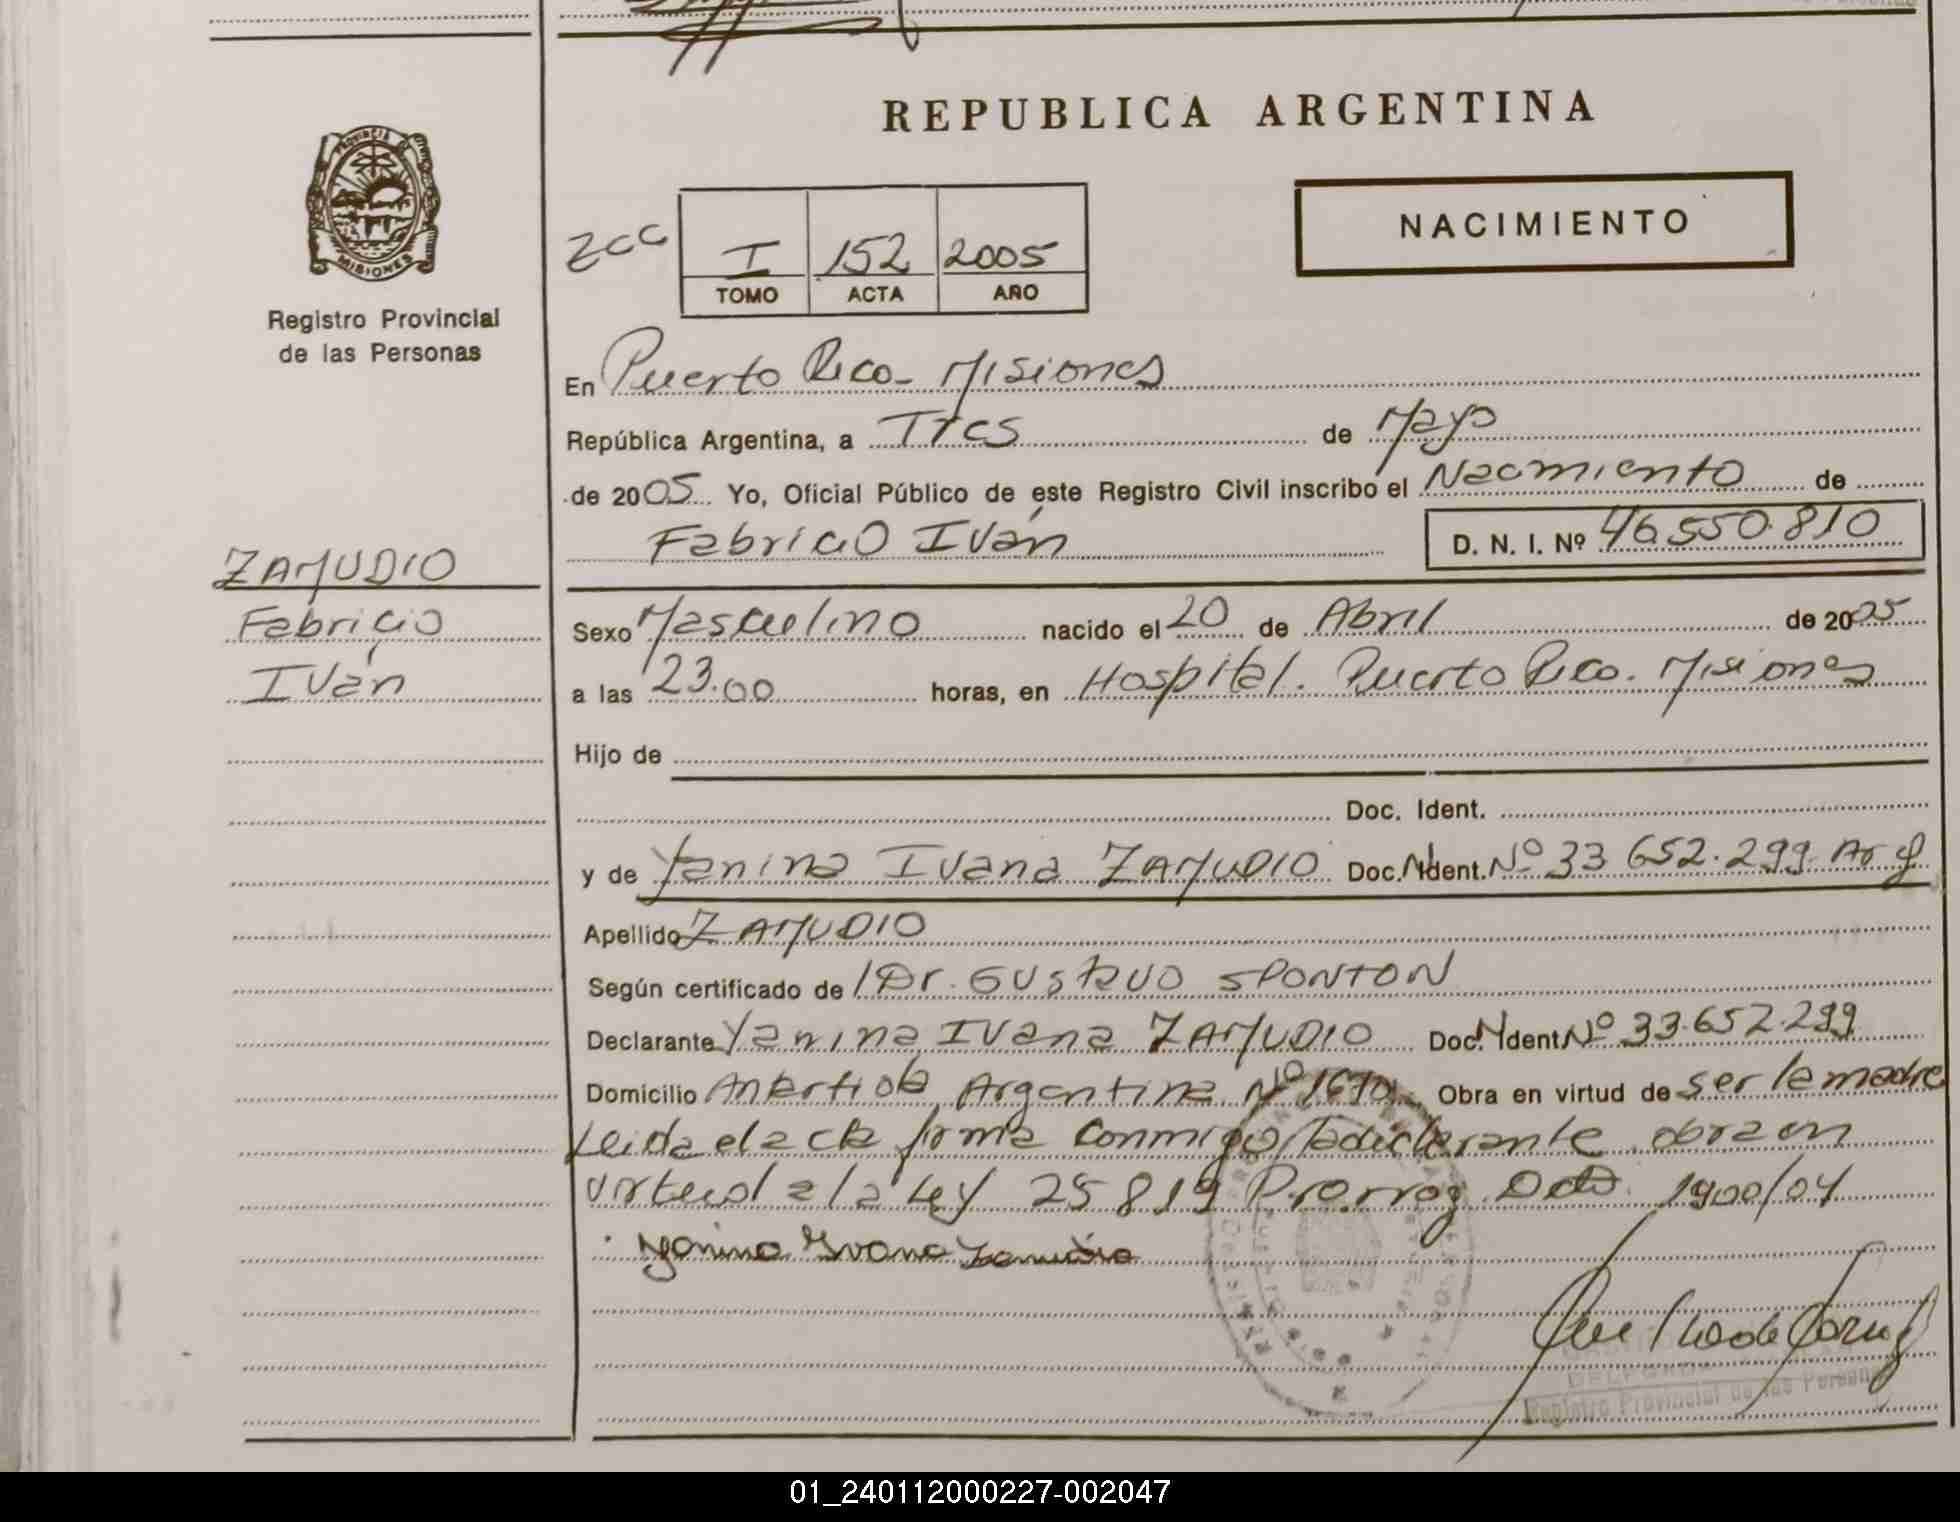 REPUBLICA ARGENTINA
PROVINCIA DE
MISIONES
Registro Provincial
de las Personas
NACIMIENTO
ZCC
I 152 2005
TOMO ACTA AÑO
En Puerto Rico - Misiones
República Argentina, a Tres de Mayo
de 2005 Yo, Oficial Público de este Registro Civil inscribo el Nacimiento de
Fabricio Iván D. N. I. Nº 46.550.810
ZAMUDIO
Fabricio
Iván
Sexo Masculino nacido el 20 de Abril de 2005
a las 23.00 horas, en Hospital. Puerto Rico. Misiones
Hijo de
Doc. Ident.
y de Yanina Ivana ZAMUDIO Doc. Ident. Nº 33 652.299 Arg
Apellido ZAMUDIO
Según certificado de Dr. GUSTAVO SPONTON
Declarante Yanina Ivana ZAMUDIO Doc. Ident Nº 33.652.299
Domicilio Antartida Argentina Nº 1670 Obra en virtud de ser la madre
Leida el acta firma conmigo la declarante. obra en
virtud a la Ley 25819 Prorrog. Dcto. 1900/04
Yanina Ivana Zamudio
Registro Provincial de las Personas
01_240112000227-002047